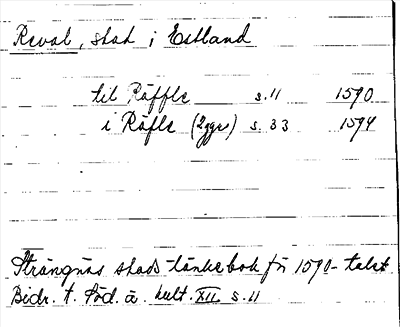 Reval, stad i Estland
til Räffle s. 11 1590
i Räfle (2ggr) s. 33 1594
Strängnäs stads tänkebok för 1590-talet
Bidr. t. Söd. ä. kult. XII s. 11